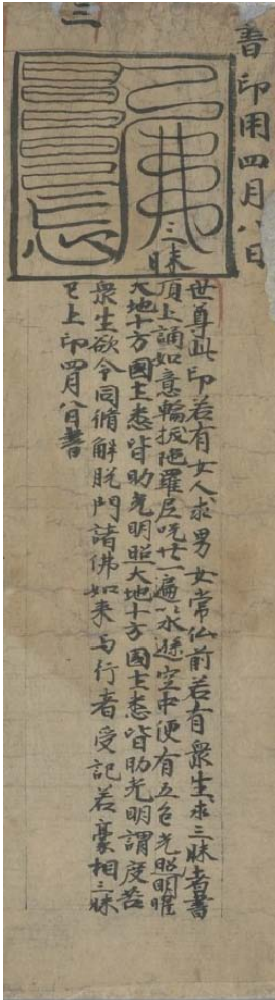 三
書印用四月八日
三昧
世尊此印若有女人求男女常仏前若有衆生求三昧者書
頂上誦如意輪拔陁羅尼呪廿一遍以水遜空中便有五色光昭明曜
大地十方國主悉皆助光明照大地十方國主悉皆助光明謂度苦
衆生欲令同脩解脫門諸佛如来与行者受記若豪相三昧
已上印四月八日書